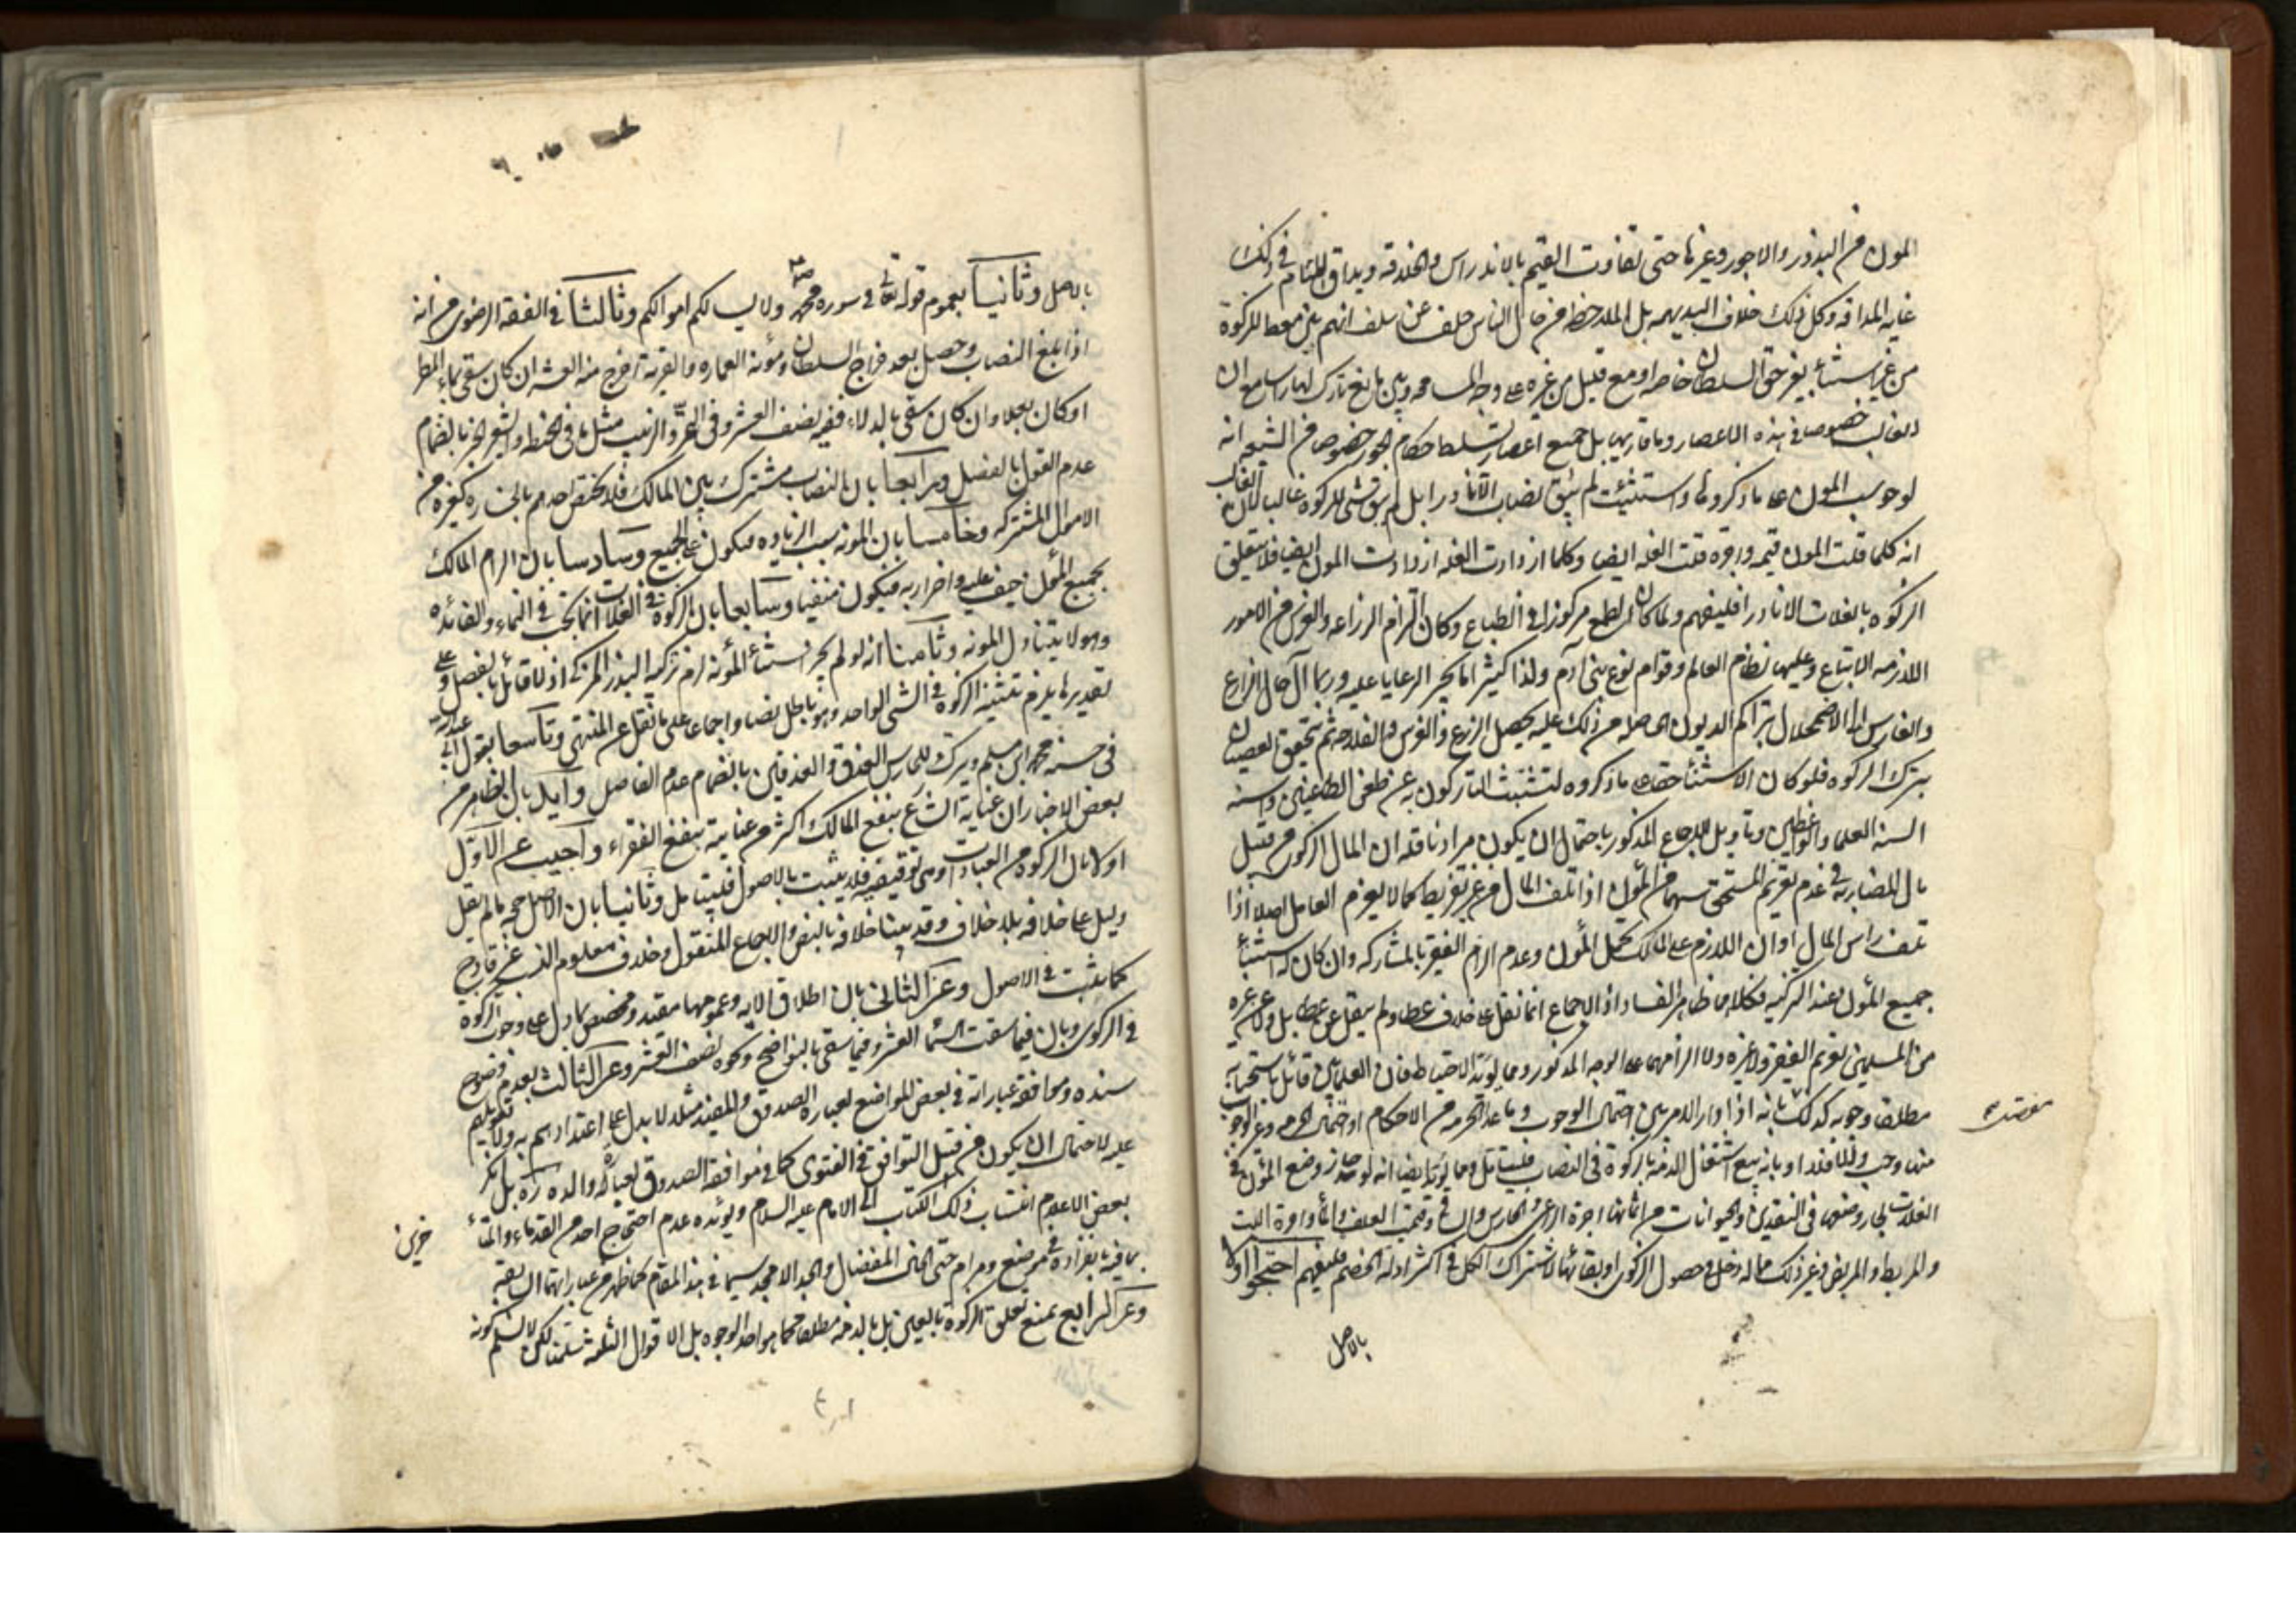 المؤن من البذور والاجور وغيرها حتى تفاوت القيم بالاندراس والخلاقه ويداق للثام في ذلك
غايه المداقه وكل ذلك خلاف البديهه بل الملاحظ من حال الناس خلف عن سلف انهم بين معط للزكوة
من غير استثناء بغير حق السلطان خاصه او مع قليل من غيره على وجه المسامحه وبين مانع تارك لها راسا مع ان
الغالب خصوصا في هذه الاعصار وما قاربها بل جميع اعصار تسلط حكام الجور خصوصا من الشيعه انه
لو حوسب المؤن على ما ذكروها واستثنيت لم يبق نصاب الا نادرا بل لم يبق شئ للزكوه غالبا لان الغالب
انه كلما قلت المؤن قيمه واجره قلت الغله ايضا وكلما ازدادت الغله ازدادت المؤن ايضا فلا يتعلق
الزكوه بالغلات الا نادرا فليفهم ولما كان الطمع مركوزا في الطباع وكان التزام الزراعه والغرس من الامور
اللازمه الاتباع وعليها نظام العالم وقوام نوع بني آدم ولذا كثيرا ما يجبر الرعايا عليه وربما آل حال الزارع
والغارس الى الاضمحلال بتراكم الديون الحاصله من ذلك عليه يحصل الزرع والغرس والفلاحه ثم يتحقق العصيان
بترك الزكوه فلو كان الاستثناء حقا على ما ذكروه لتشبث التاركون به عن طعن الطاعنين والسنه
السنه العلماء والواعظين وتاويل الاجماع المذكور باحتمال ان يكون مراد ناقله ان المال الزكوي من قبيل
مال المضاربه في عدم تغريم المستحق سهما من المؤن اذا تلف المال من غير تفريط كما لا يغرم العامل اصلا اذا
تلف راس المال او ان اللازم على المالك تحمل المؤن وعدم الزام الفقير بالمشاركه وان كان له استثناء
جميع المؤن عند التزكيه فكلاهما ظاهر الفساد اذ الاجماع انما نقل على خلاف عطا ولم ينقل عن عطا بل ولا عن غيره
من المسلمين تغريم الفقير ولا غيره ولا الزامهما على الوجه المذكور ومما يؤيد الاحتياط فان العلماء بين قائل باستحبابه
مطلقا ووجوبه كذلك بانه اذا دار الامر بين احتمال الوجوب وما عدا الحرمه من الاحكام او احتمال الحرمه وغير الوجوب
منها وجب والا فلا او بانه يتبع اشتغال الذمه بالزكوة في النصاب فليتامل ومما يؤيد ايضا انه لو جاز وضع المؤن في
الغلات لجاز وضعها في النقدين والحيوانات من اثمانها اجرة الراعي والحارس وقيمت العلف والماء واجرة البيت
والمربط والمربض وغير ذلك مما له دخل في حصول الزكوي او بقائها لاشتراك الكل في اكثر ادله الخصم فليفهم احتجوا اولا
بالاصل
بالاصل وثانيا بعموم قوله تعالى في سوره محمد ص ولا يسالكم اموالكم وثالثا في الفقه الرضوي من انه
اذا بلغ النصاب وحصل بعد خراج السلطان ومؤنة العماره والقرية اخرج منه العشر ان كان سقي بماء المطر
او كان بعلا وان كان سقي بالدلاء ففيه نصف العشر وفي التمر والزبيب مثل ما في الحنطه والشعير الخبر بانضمام
عدم القول بالفصل ورابعا بان النصاب مشترك بين المالك فلا يختص احدهم بالخساره كغيره من
الاموال المشتركه وخامسا بان المؤنه سبب الزياده فيكون على الجميع وسادسا بان الزام المالك
بجميع المؤن حيف عليه واضرار به فيكون منفيا وسابعا بان الزكوة في الغلات انما يجب في النماء والفائده
وهو لا يتناول المونه وثامنا انه لو لم يجز استثناء المؤنه لزم تزكيه البذر المزكى اذ لا قائل بالفصل وعلى
تقديرها يلزم تثنيه الزكوة في الشئ الواحد وهو باطل نصا واجماعا على ما نقل عن المنتهى وتاسعا بقول ابي عبد الله
في حسنه محمد بن مسلم ويترك للحارس العذق والعذقين بانضمام عدم الفاصل وايد بان الظاهر من
بعض الاخبار ان عناية الشارع بنفع المالك اكثر من عنايته بنفع الفقراء واجيب عن الاول
اولا بان الزكوة من العبادات وهي توقيفيه فلا يثبت بالاصول فليتامل وثانيا بان الاصل حجه ما لم يقل
دليل على خلافه بلا خلاف وقد بينا خلافه بالنص والاجماع المنقول وخلاف معلوم النسب غير قادح
كما يثبت في الاصول وعن الثاني بان اطلاق الايه وعمومها مقيد ومخصص بما دل على وجوب الزكوة
في الزكوي وبان فيما سقت السماء العشر وفيما سقي بالنواضح ونحوه نصف العشر وعن الثالث بعدم وضوح
سنده وموافقة عباراته في بعض المواضع لعباره الصدوق والمفيد مثلا لا يدل على اعتدادهم به ولا تعويلهم
عليه لاحتمال ان يكون من قبيل التوافق في الفتوى كما في موافقه الصدوق لعباره والده ره بل انكر
بعض الاعلام انتساب ذلك الكتاب الى الامام عليه السلام ويؤيده عدم احتجاج احد من القدماء والمتأ
خرين
بما فيه بانفراده في موضع ومرام حتى الخال المفضال والجد الامجد سيما في هذا المقام كما ظهر من عباراتهما السابقه
وعن الرابع بمنع تعلق الزكوة بالعين بل بالذمه مطلقا كما هو احد الوجوه بل الاقوال الثلثه سلمنا لكن لا نسلم كونه